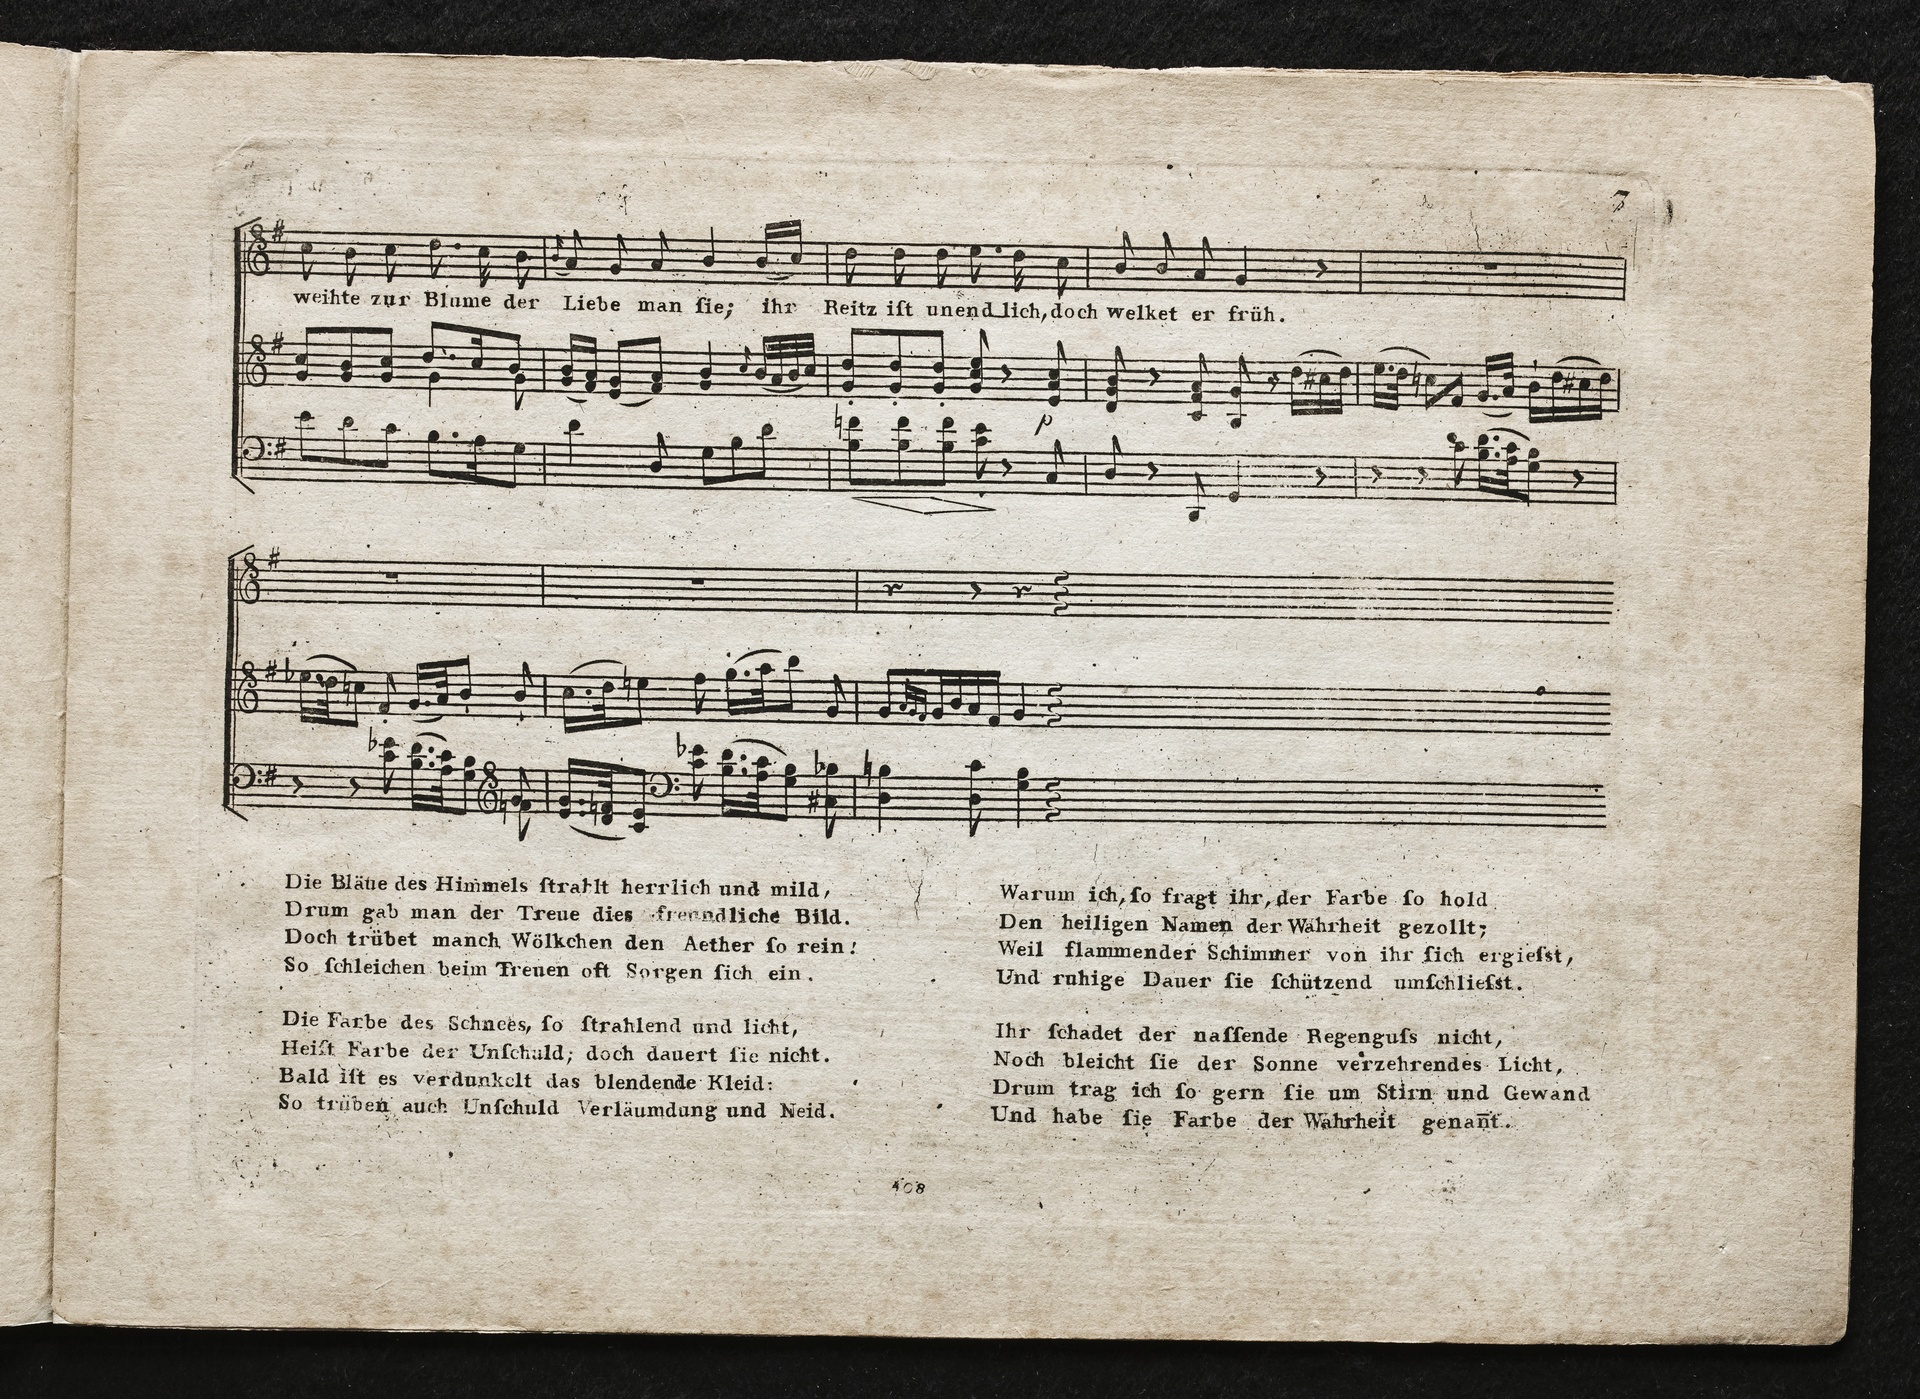 3
weihte zur Blume der Liebe man ſie; ihr Reitz iſt unendlich, doch welket er früh.
p
Die Bläue des Himmels ſtrahlt herrlich und mild,
Drum gab man der Treue dies freundliche Bild.
Doch trübet manch Wölkchen den Aether ſo rein!
So ſchleichen beim Treuen oft Sorgen ſich ein.
Die Farbe des Schnees, ſo ſtrahlend und licht,
Heiſt Farbe der Unſchuld; doch dauert ſie nicht.
Bald iſt es verdunkelt das blendende Kleid:
So trüben auch Unſchuld Verläumdung und Neid.
Warum ich, ſo fragt ihr, der Farbe ſo hold
Den heiligen Namen der Wahrheit gezollt;
Weil flammender Schimmer von ihr ſich ergieſst,
Und ruhige Dauer ſie ſchützend umſchlieſst.
Ihr ſchadet der naſſende Regenguſs nicht,
Noch bleicht ſie der Sonne verzehrendes Licht,
Drum trag ich ſo gern ſie um Stirn und Gewand
Und habe ſie Farbe der Wahrheit genan̅t.
408